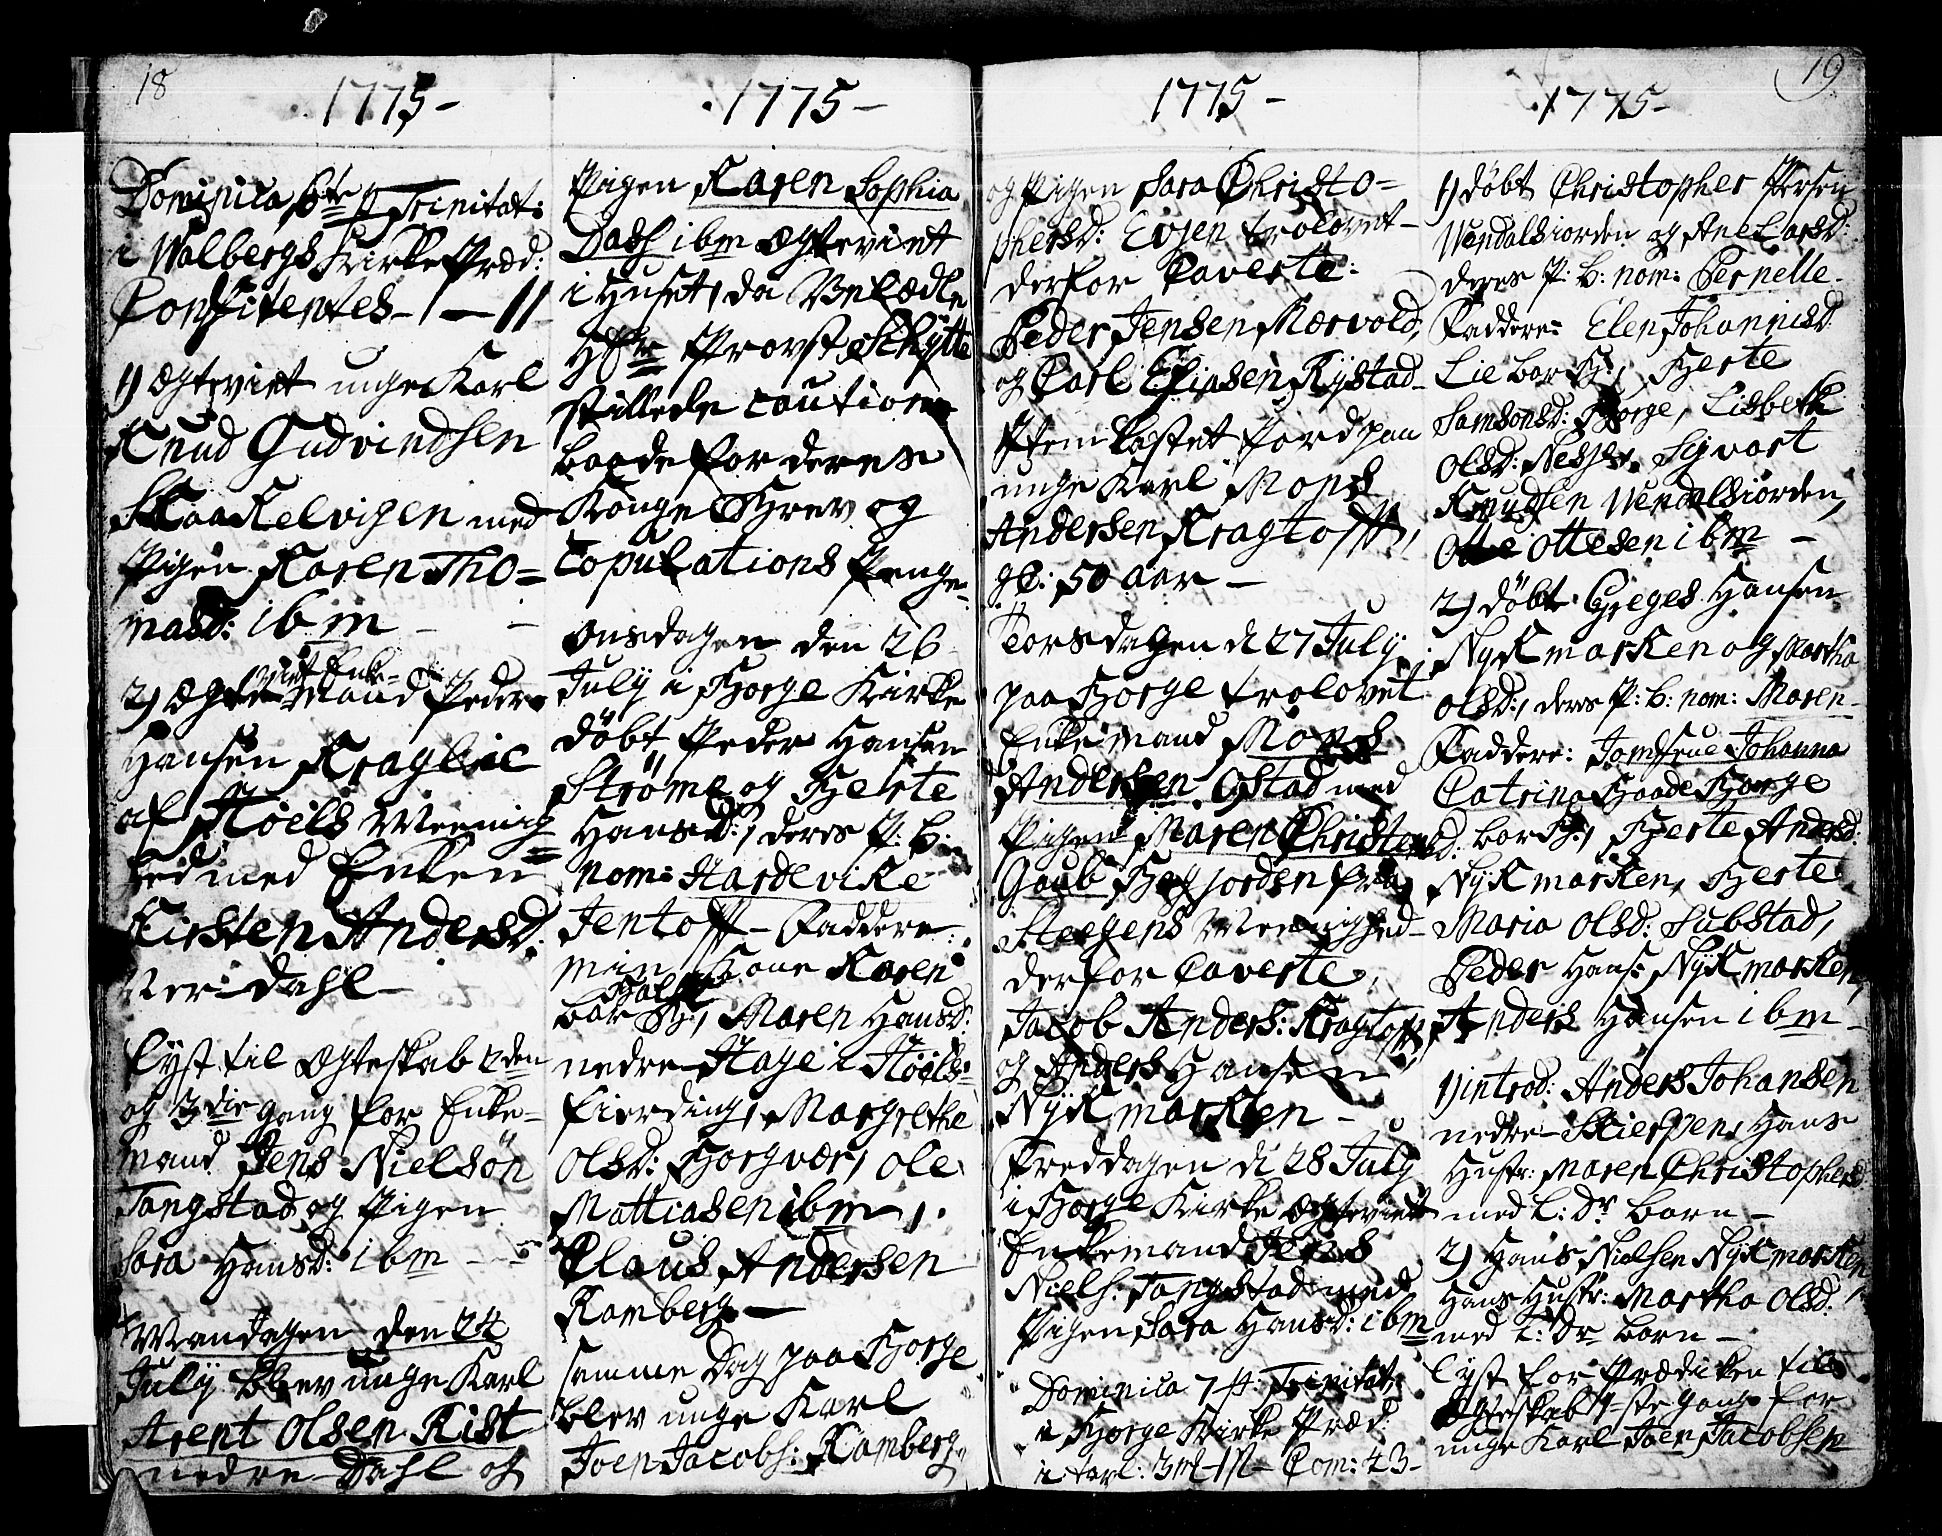 18
1775-
Dominica 6te p Trinitat:
i Walbergs Kirke Præd:
Confitentes - 1 - 11
1) Ægteviet unge Karl
Knud Gudvindsen
Skaakelvigen med
Pigen Karen Tho=
masd: ibm -
viet Enke-
2) Ægte Mand Peder
Hansen Kraglie
af Høiels Meenig
hed med Enken
Kirsten Andersd:
Neridahl -
Lyst til Ægteskab 2den
og 3die gang for Enke-
mand Jens Nielsøn
Tangstad og Pigen
Sara Hansd: ibm -
Mandagen den 24
July blev unge Karl
Arent Olsen Rist
nedre Dahl og
1775-
Pigen Karen Sophia
Dass ibm Ægteviet
i Huset, da Velædle
Hr Provst Schytte
stillede caution
baade for deres
Konge Brev og
Copulations Penge
Onsdagen den 26
July i Borge Kirke
døbt Peder Hansen
Strøme og Berte
Hansd:, deres P: B:
nom: Hardevike
Jentofft - Faddere:
min Kone Karen
Falch
bar B:, Maren Hansd:
nedre Hage i Høiels
fierding, Margrethe
Olsd: Borgvær, Ole
Mattiasen ibm,
Claus Andersen
Ramberg -
samme Dag paa Borge
blev unge Karl
Joen Jacobs: Ramberg
1775-
og Pigen Sara Christo=
phersd: Evjen trolovet -
derfor Caverte:
Peder Jensen Mærvold,
og Carl Eliasen Rystad -
Item kastet Jord paa
unge Karl Mons
Andersen Kragtofft,
gl: 50 aar -
Torsdagen d: 27 July
paa Borge trolovet
Enkemand Mons
Andersen Ostad med
Pigen Maren Christensd:
Gaub Bøgfjorden fra
Steegens Meenighed -
derfor Caverte,
Jacob Anders: Kragtofft,
og Anders Hansen
Nykmarken -
Freddagen d: 28 July
i Borge Kirke Ægteviet
Enkemand Jens
Niels: Tangstad med
Pigen Sara Hansd: ibm
Dominica 7 p: Trinitat:
i Borge Kirke Præd:
Com: 43 -
19
1775-
1) døbt Christopher Persen
Vendalsiorden og Ane Larsd:
deres P: B: nom: Pernelle -
Faddere: Elen Johannisd:
Lie bar B:, Berte
Samsonsd: Borge, Lisbeth
Olsd: Nesje, Syvart
Knudsen Vendalsiorden,
Otte Ottesen ibm -
2) døbt Greges Hansen
Nykmarken og Martha
Olsd:, deres P: B: nom: Maren -
Faddere: Jomfrue Johanna
Catrina Baade Borge
bar B:, Berte Andersd:
Nykmarken, Berte
Maria Olsd: Substad,
Peder Hans: Nykmarken,
Anders Hansen ibm -
1) introd: Anders Johansen
nedre Skierpen, Hans
Hustr: Maren Christophersd:
med L: Dr barn -
2) Hans Nielsen Nykmarken
Hans Hustr: Martha Olsd:
med L: Dr barn -
Lyst for Prædicken til
Ægteskab 1ste gang for
unge Karl Joen Jacobsen